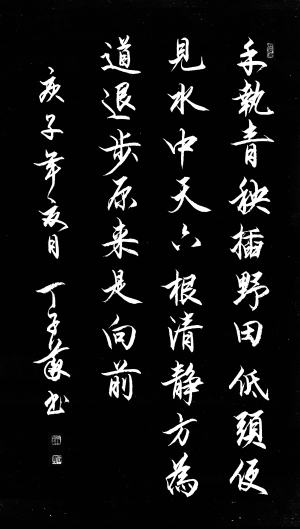 手執青秧插野田低頭便
見水中天六根清静方為
道退步原来是向前
庚子年夏月